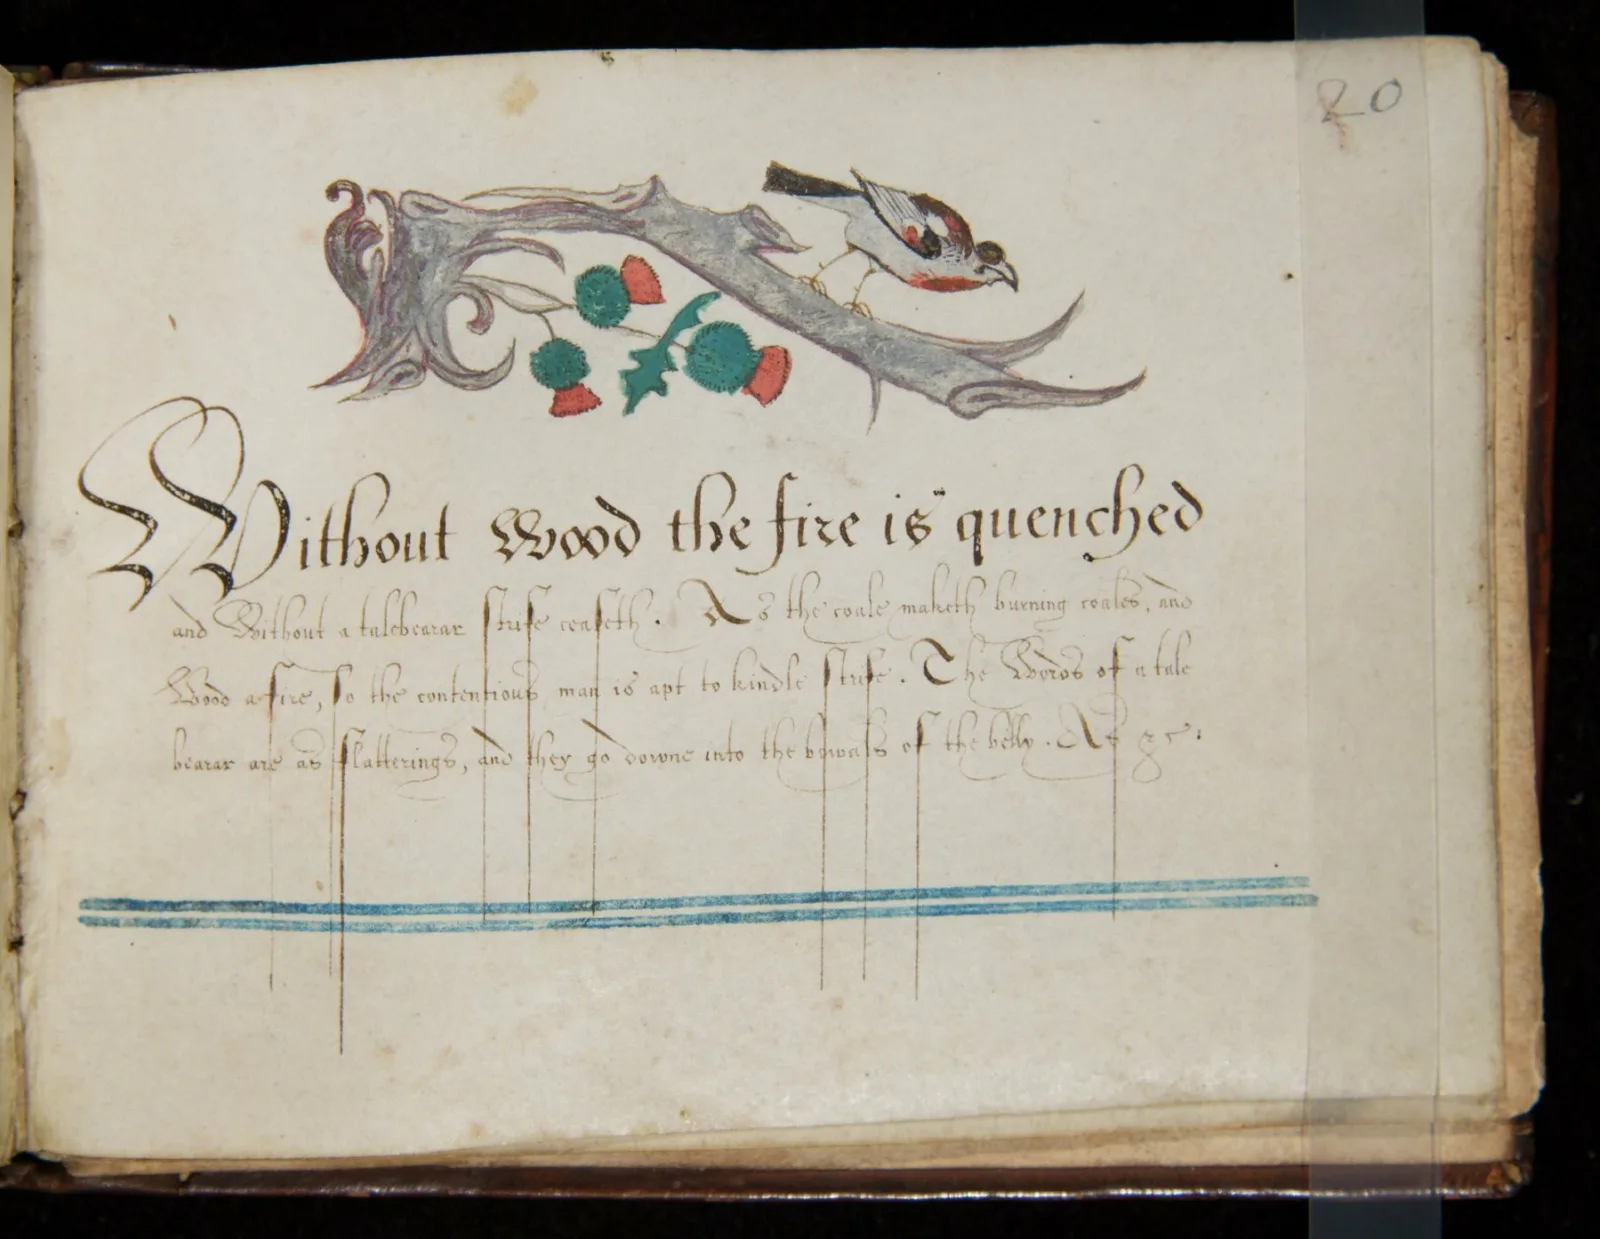 20
Without Wood the fire is quenched
and Without a talebearar strife ceaseth. As the coale maketh burning coales, and
Wood a fire, so the contentious man is apt to kindle strife. The Words of a tale
bearar are as flatterings, and they go downe into the bowals of the belly. As &c.